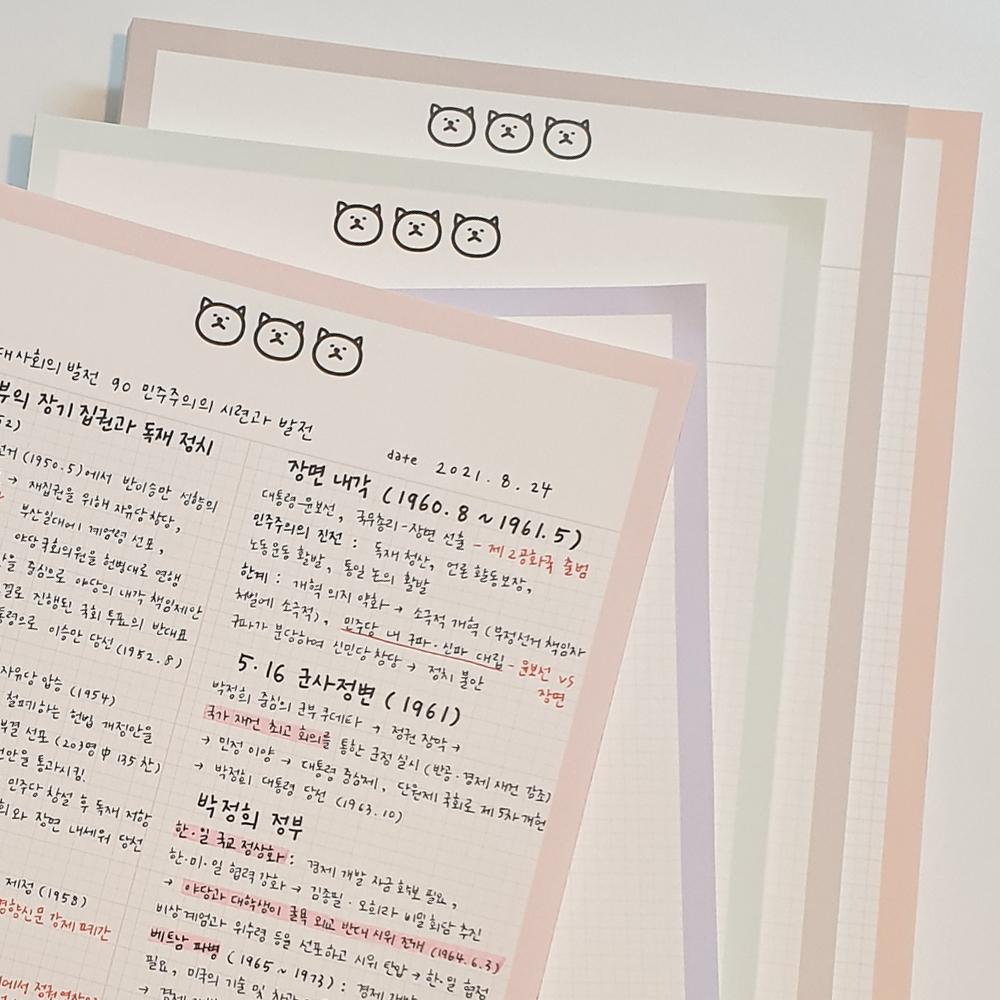 대사회의 발전 90 민주주의의 시련과 발전
date 2021. 8. 24
부의 장기 집권과 독재 정치
52)
선거 (1950.5)에서 반이승만 성향의
→ 재집권을 위해 자유당 창당,
부산일대에 계엄령 선포,
야당 국회의원을 헌병대로 연행
을 중심으로 야당의 내각 책임제안
결로 진행된 국회 투표의 반대표
통령으로 이승만 당선 (1952. 8)
자유당 압승 (1954)
철폐하는 헌법 개정안을
부결 선포 (203명 中 135 찬)
안을 통과시킴.
민주당 창설 후 독재 저항
희와 장면 내세워 당선
제정 (1958)
경향신문 강제 폐간
장면 내각 (1960. 8 ~ 1961. 5)
대통령-윤보선, 국무총리-장면 선출 - 제 2공화국 출범
민주주의의 진전 : 독재 청산, 언론 활동보장,
노동운동 활발, 통일 논의 활발
한계 : 개혁 의지 약화 → 소극적 개혁 (부정선거 책임자
처벌에 소극적), 민주당 내 구파·신파 대립 - 윤보선 vs
장면
구파가 분당하여 신민당 창당 → 정치 불안
5·16 군사정변 (1961)
박정희 중심의 군부 쿠데타 → 정권 장악 →
국가 재건 최고 회의를 통한 군정 실시 (반공·경제 재건 강조)
→ 민정 이양 → 대통령 중심제, 단원제 국회로 제 5차 개헌
→ 박정희 대통령 당선 (1963. 10)
박정희 정부
한·일 국교 정상화 : 경제 개발 자금 확보 필요,
한·미·일 협력 강화 → 김종필·오히라 비밀 회담 추진
→ 야당과 대학생이 굴욕 외교 반대 시위 전개 (1964. 6. 3)
비상계엄과 위수령 등을 선포하고 시위 탄압 → 한·일 협정
베트남 파병 (1965 ~ 1973) : 경제 개발
필요, 미국의 기술 및 차관